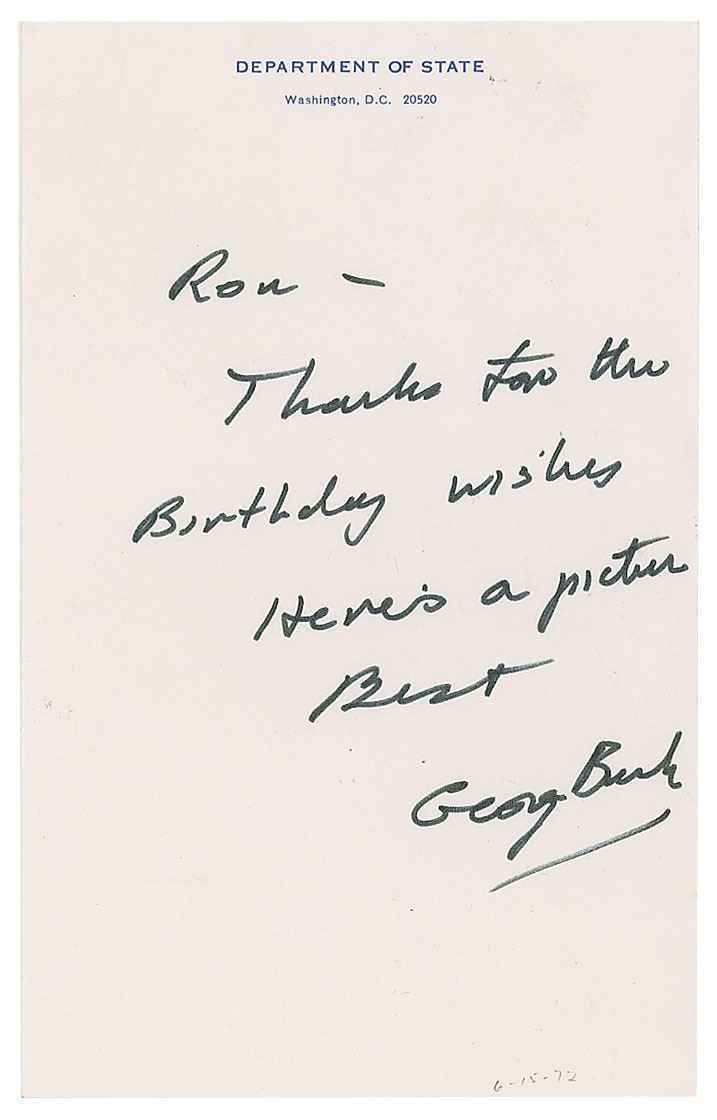 DEPARTMENT OF STATE
Washington, D.C. 20520
Ron –
Thanks for the
Birthday wishes
Here's a picture
Best
George Bush
6-15-72